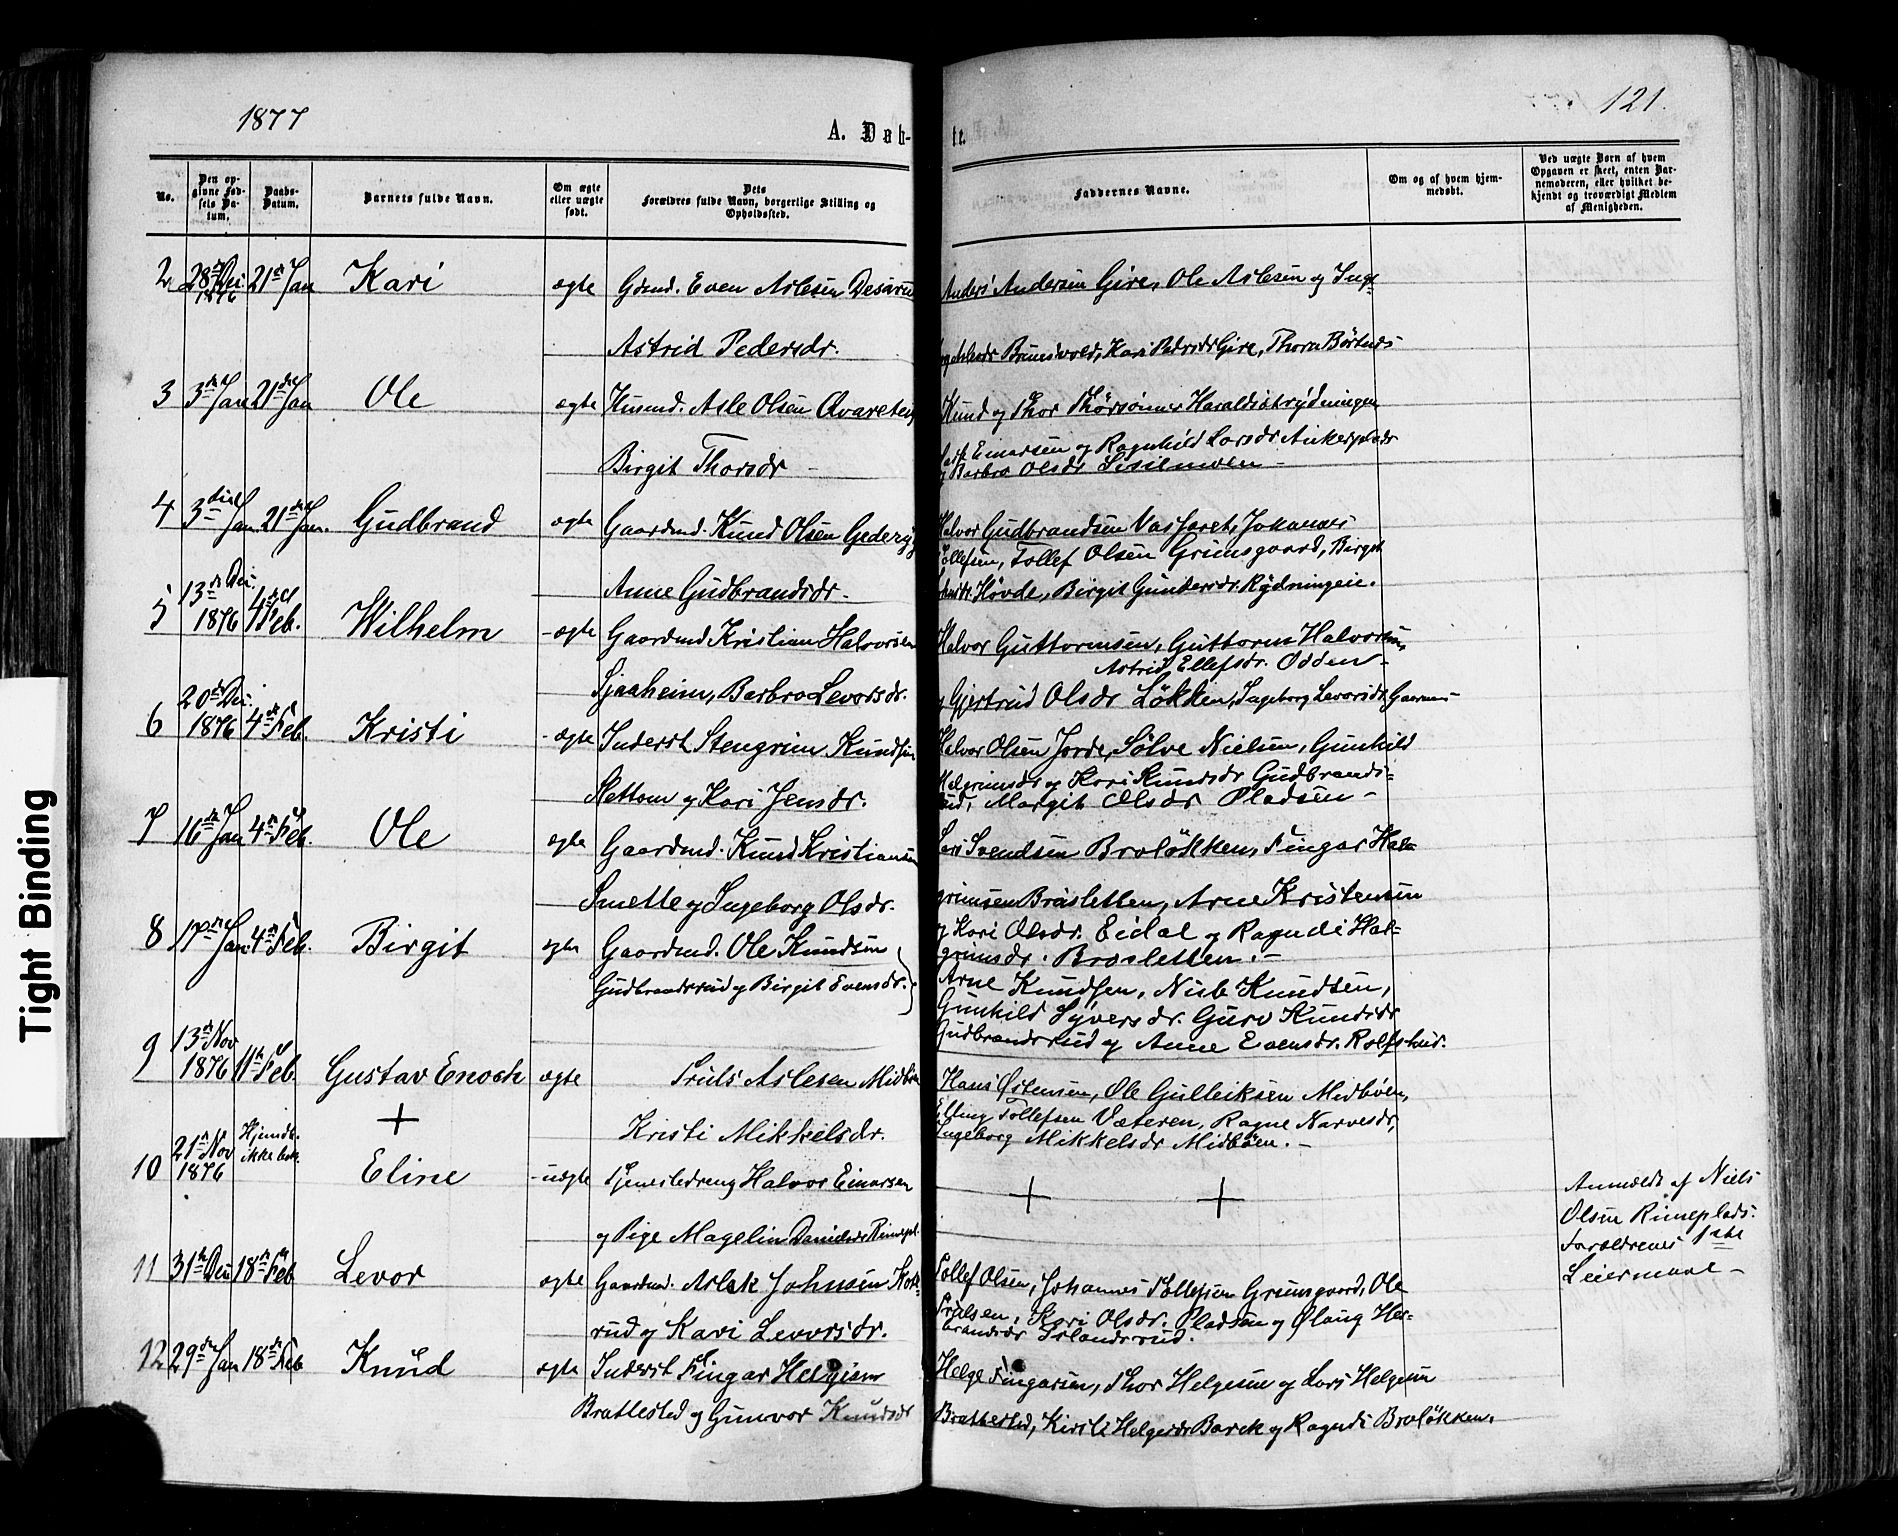 1877
A. Døb-
te.
121.
No.
Den op-
givne Fød-
sels Da-
tum.
Daabs-
Datum.
Barnets fulde Navn.
Om ægte
eller uægte
født.
Dets
Forældres fulde Navn, borgerlige Stilling og
Opholdssted.
Faddernes Navne.
Om og af hvem hjem-
medøbt.
Ved uægte Børn af hvem
Opgaven er skeet, enten Bar-
nemoderen, eller hvilket be-
kjendt og troværdigt Medlem
af Menigheden.
2 28de Dec 1876 21de Jan Kari ægte Gdmd. Even Aslesen
Astrid Pedersdr.
Anders Andersen Gire, Ole Aslesen og Inge-
Kari Pedersdr Gire, Thora
3 3die Jan 21de Jan Ole ægte Husmd. Asle Olsen
Birgit Thorsdr
Knud og Thor
Einarsen og Ragnhild Larsdr
Barbro Olsdr
4 3die Jan 21de Jan. Gudbrand ægte Gaardmd. Knud Olsen
Anne Gudbrandsdr.
Halvor Gudbrandsen Johannes
Tollefsen, Tollef Olsen Grimsgaard, Birgit
Høvde, Birgit
5 13de Dec. 1876 4de Feb. Wilhelm ægte Gaardmd Kristian Halvorsen
Sjaaheim, Barbro Levorsdr.
Halvor Guttormsen, Guttorm Halvorsen,
Astrid Ellefsdr. Odden
og Gjertrud Olsdr Løkken, Ingeborg Levorsdr
6 20de Dec. 1876 4de Feb. Kristi ægte Inderst Stengrim Knudsen
Slettom og Kari Jensdr.
Halvor Olsen Jorde, Sølve Nielsen, Gunhild
og Kari Knudsdr Gudbrands-
rud, Margit Olsdr Pladsen
7 16de Jan 4de Feb. Ole ægte Gaardmd. Knud Kristiansen
Smette og Ingeborg Olsdr.
Lars Svendsen Broløkken, Fingar Hal-
grimsen Brosletten, Arne Kristensen
og Kari Olsdr. Eidal og Ragndi Hal-
grimsdr. Brosletten.
8 17de Jan 4de Feb. Birgit ægte Gaardmd. Ole Knudsen
Gudbrandsrud og Birgit Evensdr.
Arne Knudsen, Niels Knudsen,
Gunhild Syversdr. Guro Knudsdr
Gudbrandsrud og Anne Evensdr. Rolfshus.
9 13de Nov 1876 11te Feb. Gustav Enoch ægte Truls Aslesen Midbøen
Kristi Mikkelsdr.
Hans Østensen, Ole Gulleiksen Midbøen,
Elling Tollefsen Væteren, Ragne Narvesdr,
Ingeborg Mikkelsdr Midbøen.
10 21de Nov 1876 Hjemdb. ikke bek. Eline uægte Tjenestedreng Halvor Einarsen
og Pige Magelin Danielsdr
Anmeldt af Niels
Olsen Rimeplads.
Forældrenes 1ste
Leiermaal
11 31te Dec 18de Feb Levor ægte Gaardmd. Aslak Johnsen
rud og Kari Levorsdr.
Tollef Olsen, Johannes Tollefsen Grimsgaard, Ole
Trulsen, Kari Olsdr. Pladsen og Ølaug Her-
brandsdr Islandsrud.
12 29de Jan 18de Feb Knud ægte Inderst Fingar Helgesen
Brattested og Gunvor Knudsdr
Helge Fingarsen, Thor Helgesen og Lars Helgesen
Brattested, Kirsti Helgesdr Barck og Ragndi Broløkken.
Tight Binding